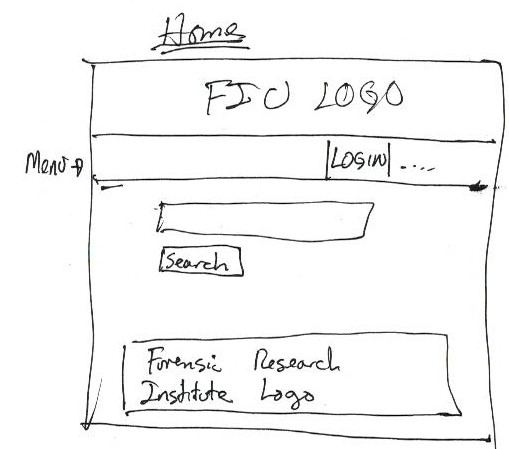 Home
FIU LOGO
Menu → LOGIN ....
Search
Forensic Research
Institute Logo